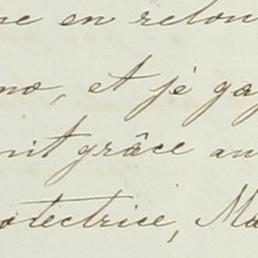 en retou
, et je ga
nit grâce au
otectrice, Ma